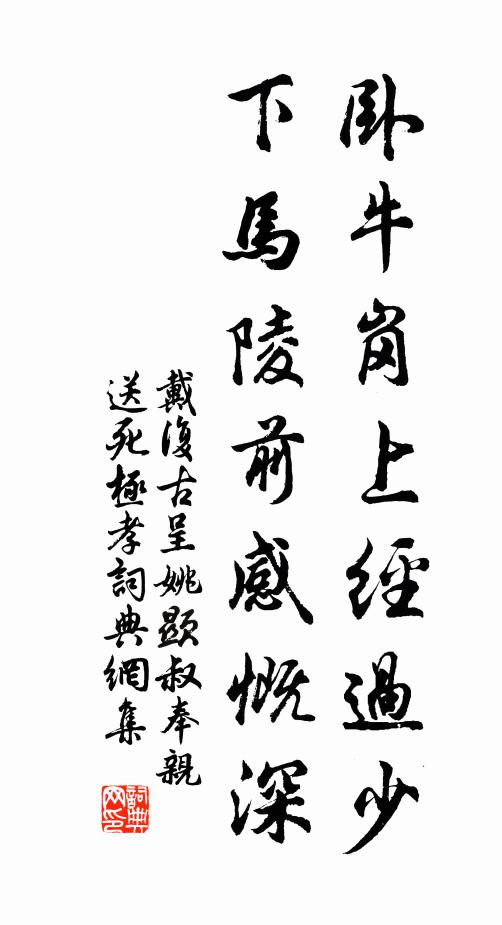 卧牛崗上經過少
下馬陵前感慨深
戴復古呈姚顯叔奉親
送死極孝詞典網集
詞典網印